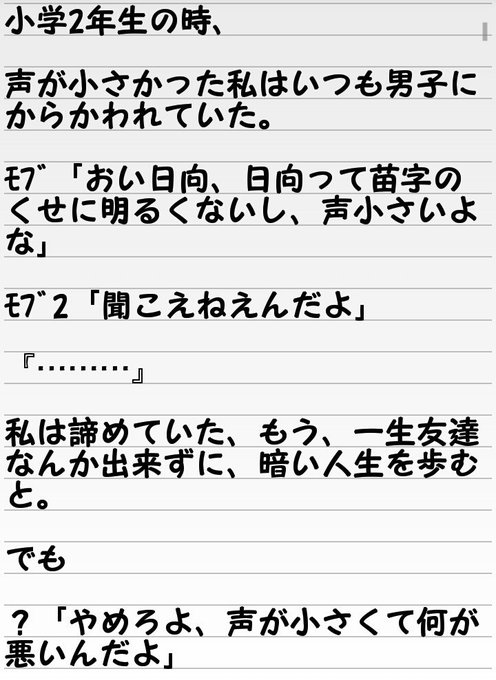 小学2年生の時、
声が小さかった私はいつも男子に
からかわれていた。
ﾓﾌﾞ「おい日向、日向って苗字の
くせに明るくないし、声小さいよ
な」
ﾓﾌﾞ2「聞こえねえんだよ」
『………』
私は諦めていた、もう、一生友達
なんか出来ずに、暗い人生を歩む
と。
でも
？「やめろよ、声が小さくて何が
悪いんだよ」